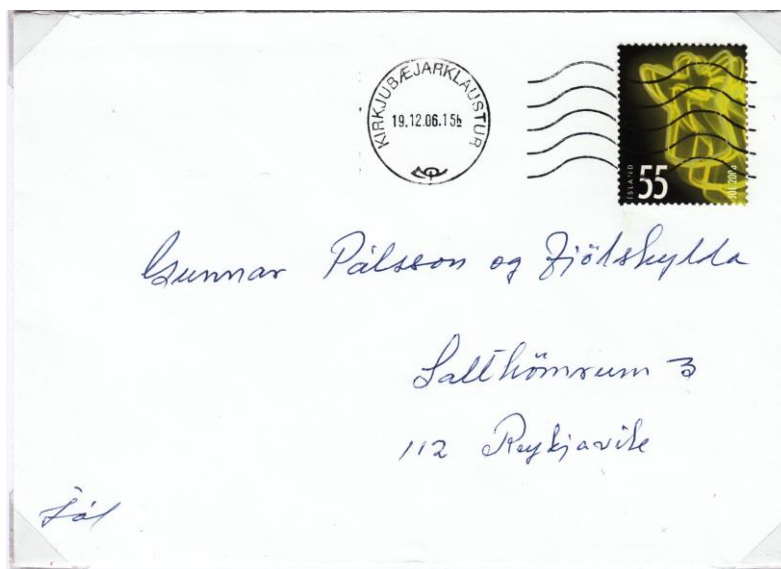 KIRKJUBÆJARKLAUSTUR
19.12.06.15h
ÍSLAND 55 JÓL 2006
Gunnar Pálsson og Fjölskylda
Salthömrum 3
112 Reykjavik
Jól